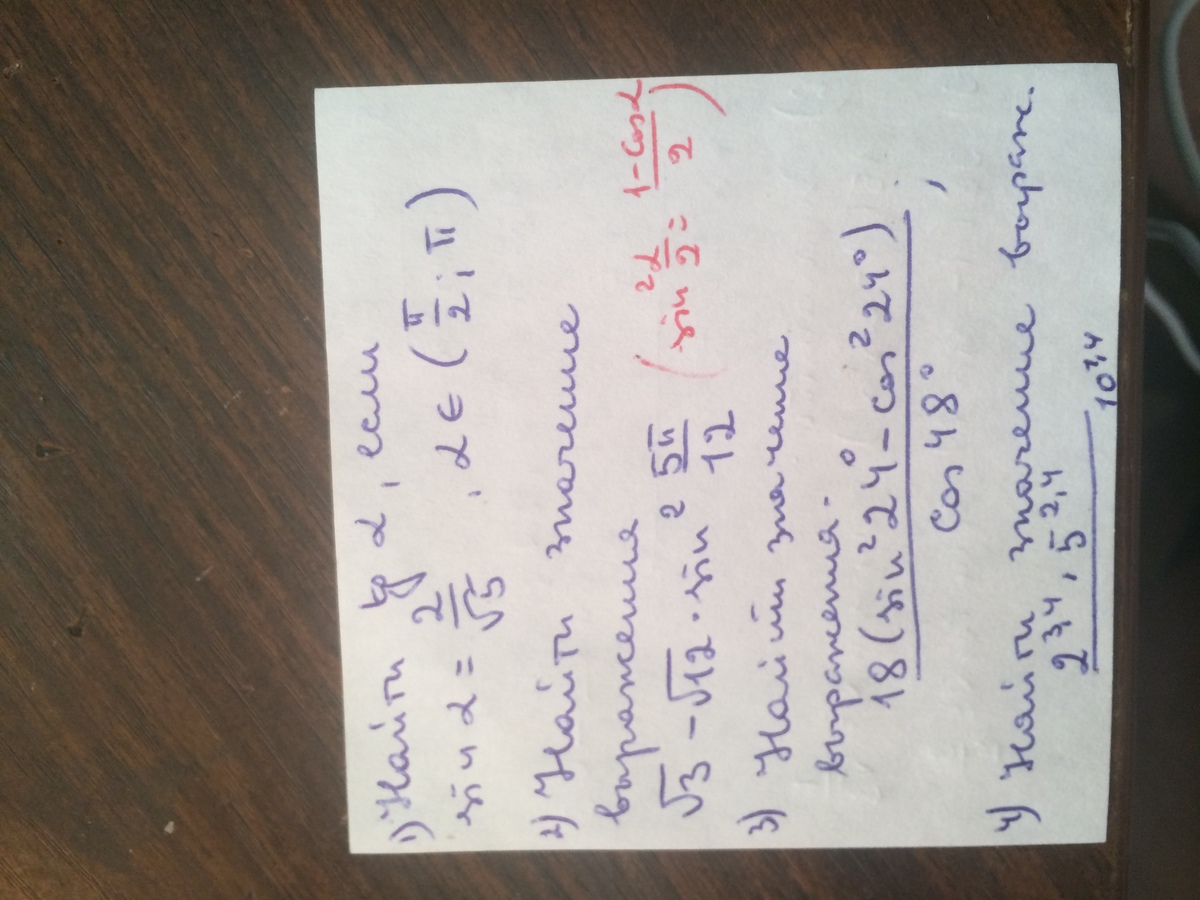 1) Найти tg α, если
sin α = 2/√5, α ∈ (π/2; π)
2) Найти значение
выражения
√3 - √12 · sin² 5π/12 (sin² α/2 = 1-cos α/2)
3) Найти значение
выражения.
18(sin² 24° - cos² 24°)/cos 48°;
4) Найти значение выраж.
2^3,4 · 5^2,4/10^2,4